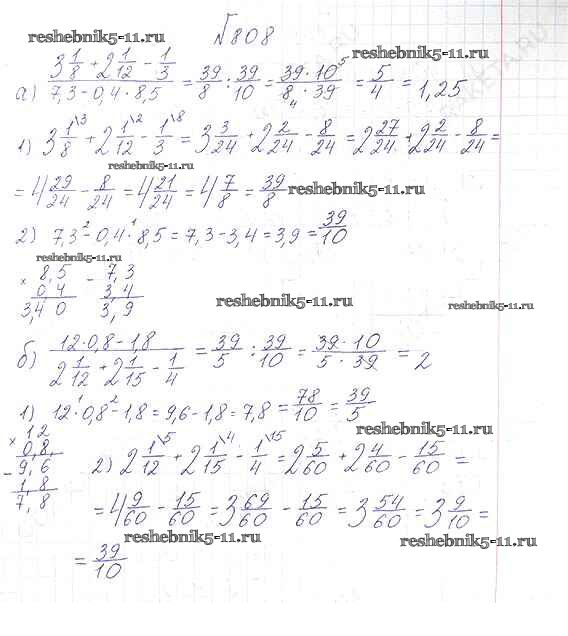 №808
reshebnik5-11.ru
reshebnik5-11.ru
а) (3 1/8 + 2 1/12 - 1/3) / (7,3 - 0,4 · 8,5) = 39/8 : 39/10 = (39 · 10⁵) / (8₄ · 39) = 5/4 = 1,25
1) 3 1\3/8 + 2 1\2/12 - 1\8/3 = 3 3/24 + 2 2/24 - 8/24 = 2 27/24 + 2 2/24 - 8/24 =
reshebnik5-11.ru
= 4 29/24 - 8/24 = 4 21/24 = 4 7/8 = 39/8
reshebnik5-11.ru
2) 7,3 -² 0,4 ·¹ 8,5 = 7,3 - 3,4 = 3,9 = 39/10
reshebnik5-11.ru
× 8,5 - 7,3
0 4 3,4
3,4 0 3,9
reshebnik5-11.ru
reshebnik5-11.ru
б) (12 · 0,8 - 1,8) / (2 1/12 + 2 1/15 - 1/4) = 39/5 : 39/10 = (39 · 10) / (5 · 39) = 2
1) 12 ·¹ 0,8 -² 1,8 = 9,6 - 1,8 = 7,8 = 78/10 = 39/5
× 12
0,8
- 9,6
1,8
7,8
2) 2 1\5/12 + 2 1\4/15 - 1\15/4 = 2 5/60 + 2 4/60 - 15/60 =
= 4 9/60 - 15/60 = 3 69/60 - 15/60 = 3 54/60 = 3 9/10 =
reshebnik5-11.ru
reshebnik5-11.ru
= 39/10